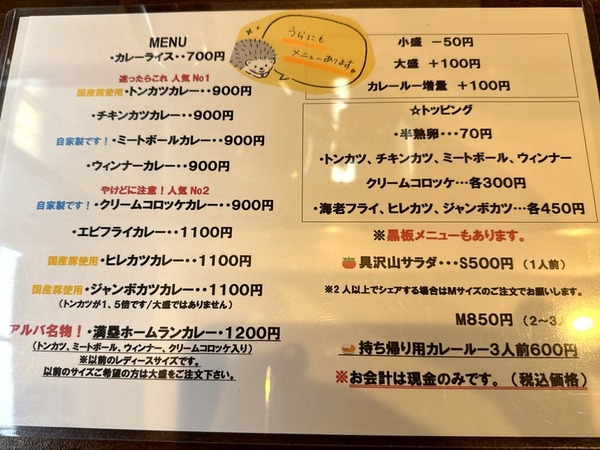 MENU
・カレーライス・・700円
迷ったらこれ 人気 No1
国産豚使用・トンカツカレー・・900円
・チキンカツカレー・・900円
自家製です！・ミートボールカレー・・900円
・ウィンナーカレー・・900円
やけどに注意！人気 No2
自家製です！・クリームコロッケカレー・・900円
・エビフライカレー・・1100円
国産豚使用・ヒレカツカレー・・1100円
国産豚使用・ジャンボカツカレー・・1100円
（トンカツが1、5倍です/大盛ではありません）
アルバ名物！・満塁ホームランカレー・1200円
（トンカツ、ミートボール、ウィンナー、クリームコロッケ入り）
※以前のレディースサイズです。
以前のサイズご希望の方は大盛をご注文下さい。
うらにも
メニューあります。
小盛 －50円
大盛 ＋100円
カレールー増量 ＋100円
☆トッピング
・半熟卵・・・70円
・トンカツ、チキンカツ、ミートボール、ウィンナー
クリームコロッケ…各300円
・海老フライ、ヒレカツ、ジャンボカツ…各450円
※黒板メニューもあります。
具沢山サラダ・・・S500円（1人前）
※2人以上でシェアする場合はMサイズのご注文でお願いします。
M850円（2～3人
持ち帰り用カレールー3人前600円
※お会計は現金のみです。（税込価格）